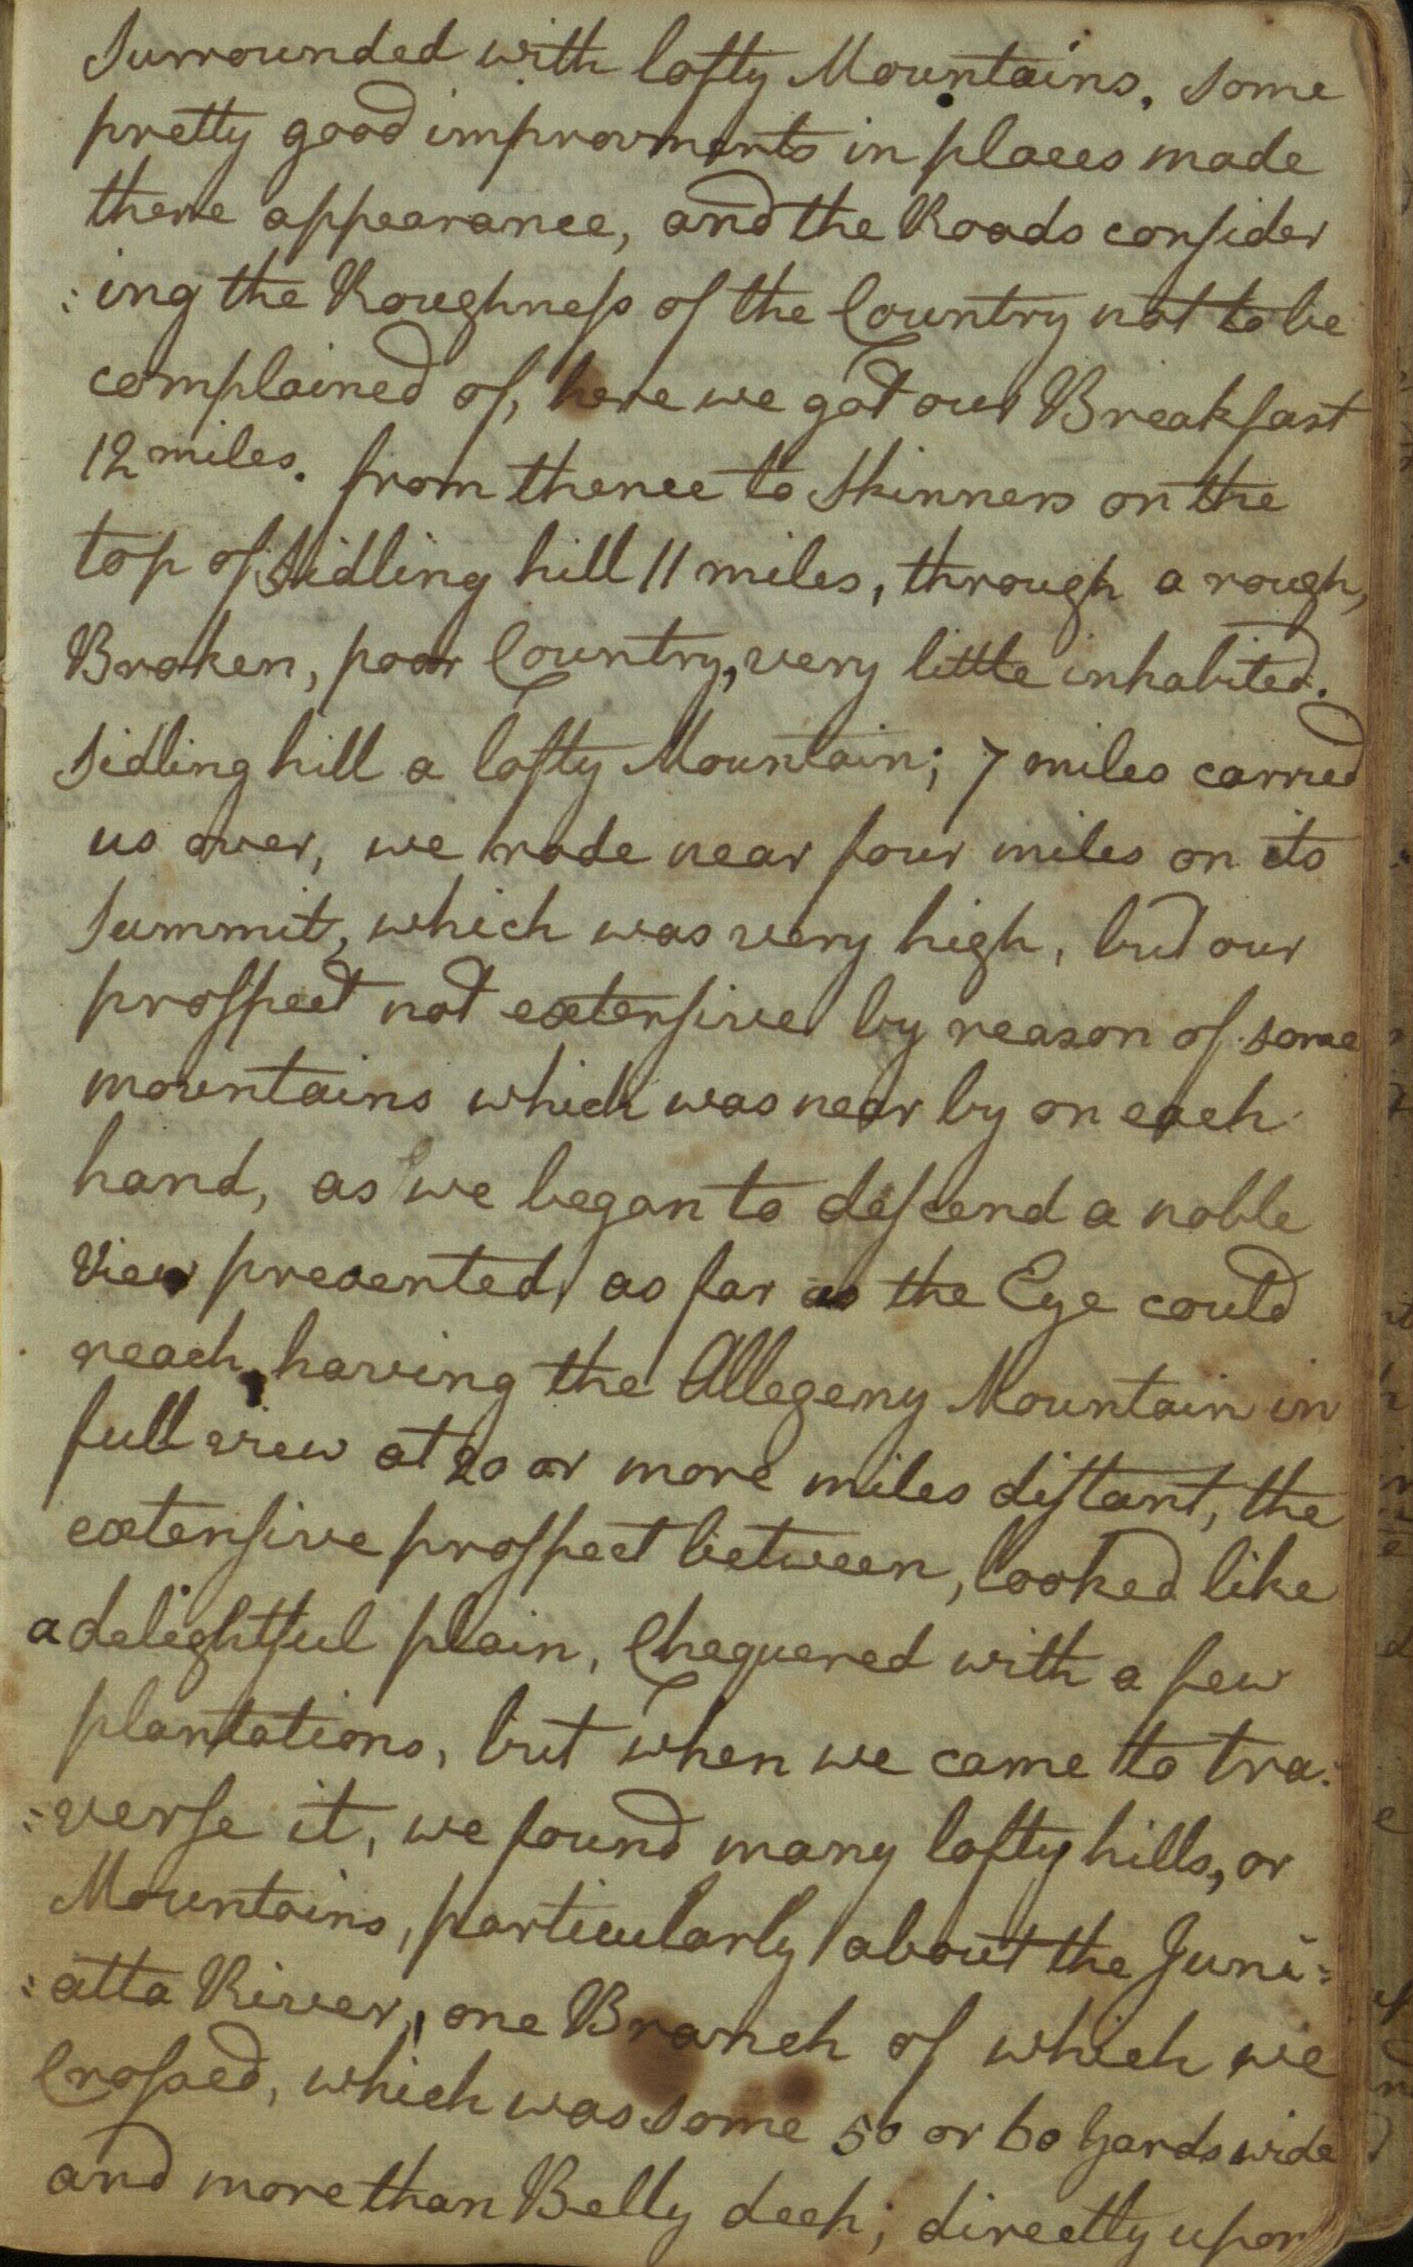 Surrounded with lofty Mountains. Some
pretty good improvments in places made
there appearance, and the Roads consider
:ing the Roughness of the Country not to be
complained of, here we got our Breakfast
12 miles. from thence to Skinners on the
top of Sidling hill 11 miles, through a rough,
Broken, poor Country, very little inhabited.
Sidling hill a lofty Mountain; 7 miles carried
us over, we rode near four miles on its
Summit, which was very high, but our
prospect not extensive by reason of some
mountains which was near by on each
hand, as we began to descend a noble
View presented, as far as the Eye could
reach, having the Allegeny Mountain in
full view at 20 or more miles distant, the
extensive prospect between, looked like
a delightful plain, Chequered with a few
plantations, but when we came to tra:
:verse it, we found many lofty hills, or
Mountains, particularly about the Juni:
:atta River, one Branch of which we
Crossed, which was some 50 or 60 Yards wide
and more than Belly deep; directly upon